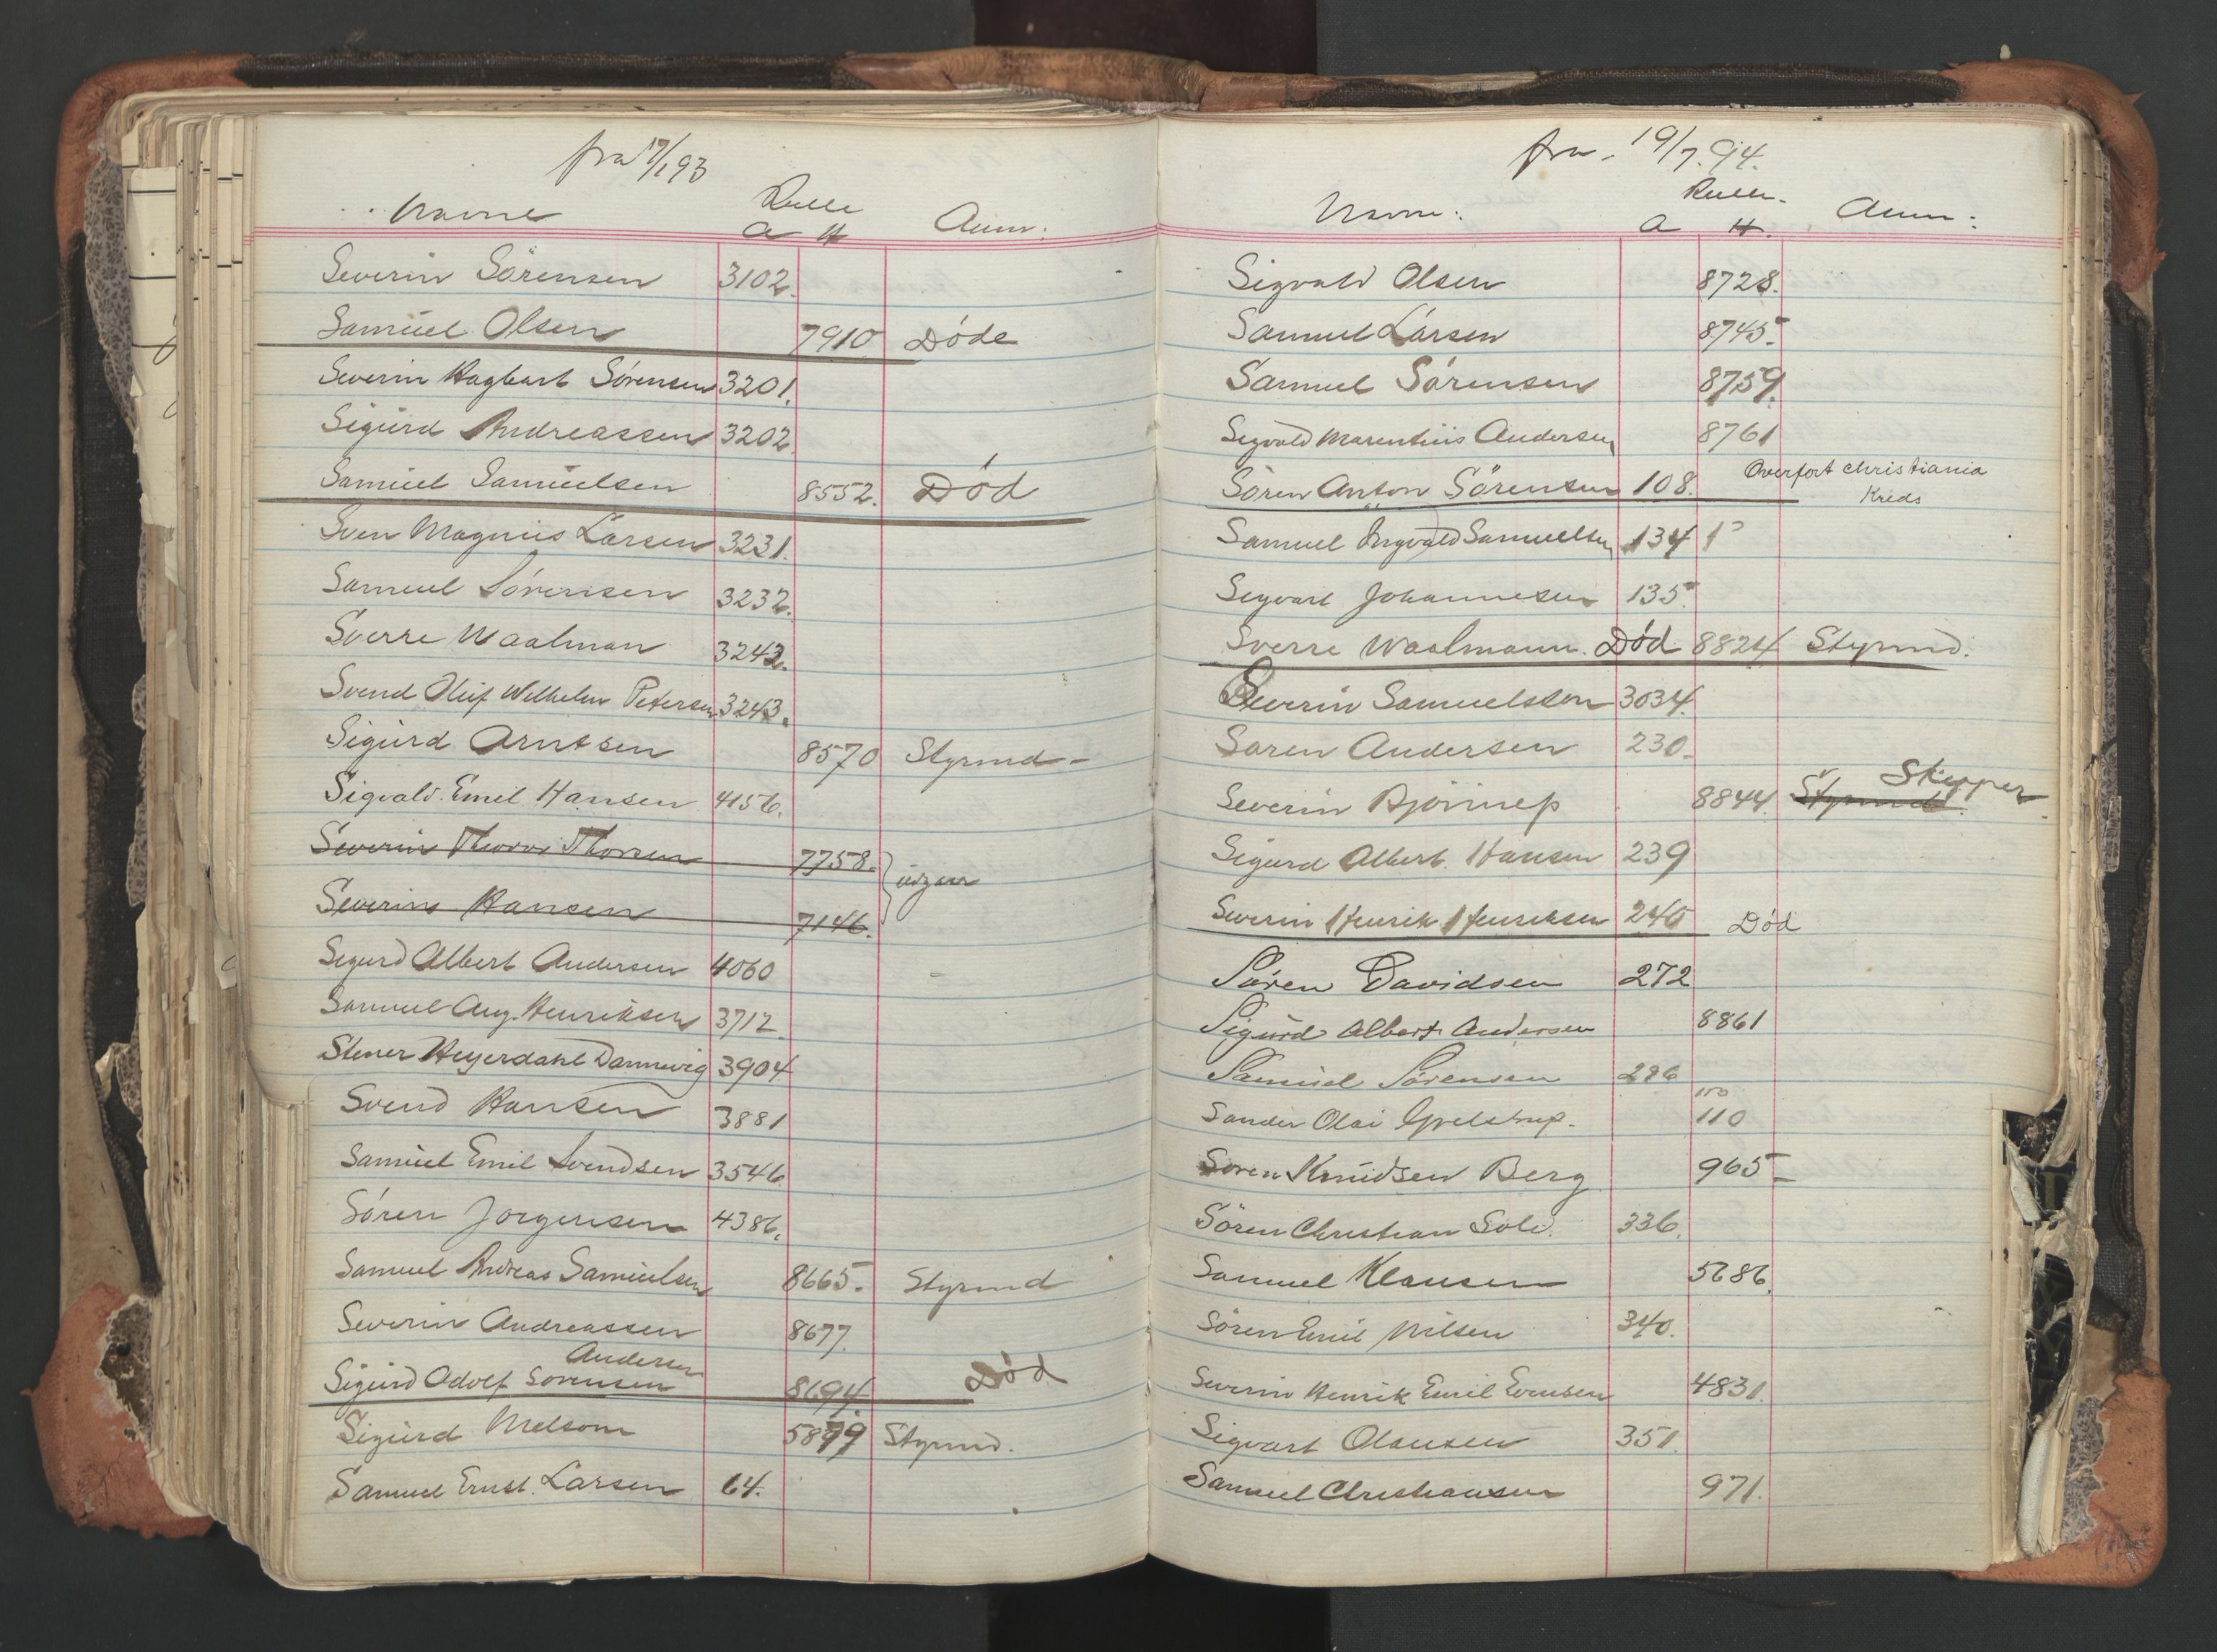 fra 17/1 93
Navne Rulle Anm.
a H
Severin Sörensen 3102.
Samuel Olsen 7910 Døde
Severin Hagbart Sörensen 3201.
Sigurd Andreassen 3202
Samuel Samuelsen 8552. Död
Sven Magnus Larsen 3231.
Samuel Sörensen 3232.
Sverre Waalman 3242.
Svend Oluf Wilhelm Petersen 3243.
Sigurd Arntsen 8570 Styrmd-
Sigvald Emil Hansen 4156.
Severin Thorsen 7758.
Severin Hansen 7146.
udgaar
Sigurd Albert Andersen 4060
Samuel Aug. Henriksen 3712
Stener Heyerdahl Dannevig 3904
Svend Hansen 3881
Samuel Emil Svendsen 3546
Sören Jorgensen 4386.
Samuel Andreas Samuelsen 8665. Styrmd
Severin Andreassen 8677.
Andersen
Sigurd Adolf Sorensen 8694. Död
Sigurd Melsom 5879 Styrmd.
Samuel Ernst. Larsen 64.
fra 19/7.94.
Navn: Rulle. Anm:
a H.
Sigvald Olsen 8728.
Samuel Larsen 8745.
Samuel Sörensen 8759.
Sigvald Marentius Andersen 8761
Sören Anton Sörensen 108. Overfört Christiania
Kreds
Samuel Ingvald Samuelsen 134
Sigvart Johannesen 135.
Sverre Waalmann. Död 8824 Styrmd.
Severin Samuelsen 3034.
Saren Andersen 230.
Skipper
Severin Bjönnes 8844. Styrmd.
Sigurd Albert. Hansen 239
Severin Henrik Henriksen 240 Död
Sören Davidsen 272
Sigurd Albert Andersen 8861
Samuel Sörensen 286
Sander Olai 110
Soren Knudsen Berg 965
Sören Christian Solv. 336.
Samuel Klausen 5686.
Sören Emil Nilsen 340.
Severin Henrik Emil Evensen 4831.
Sigvart Olausen 351.
Samuel Christiansen 971.